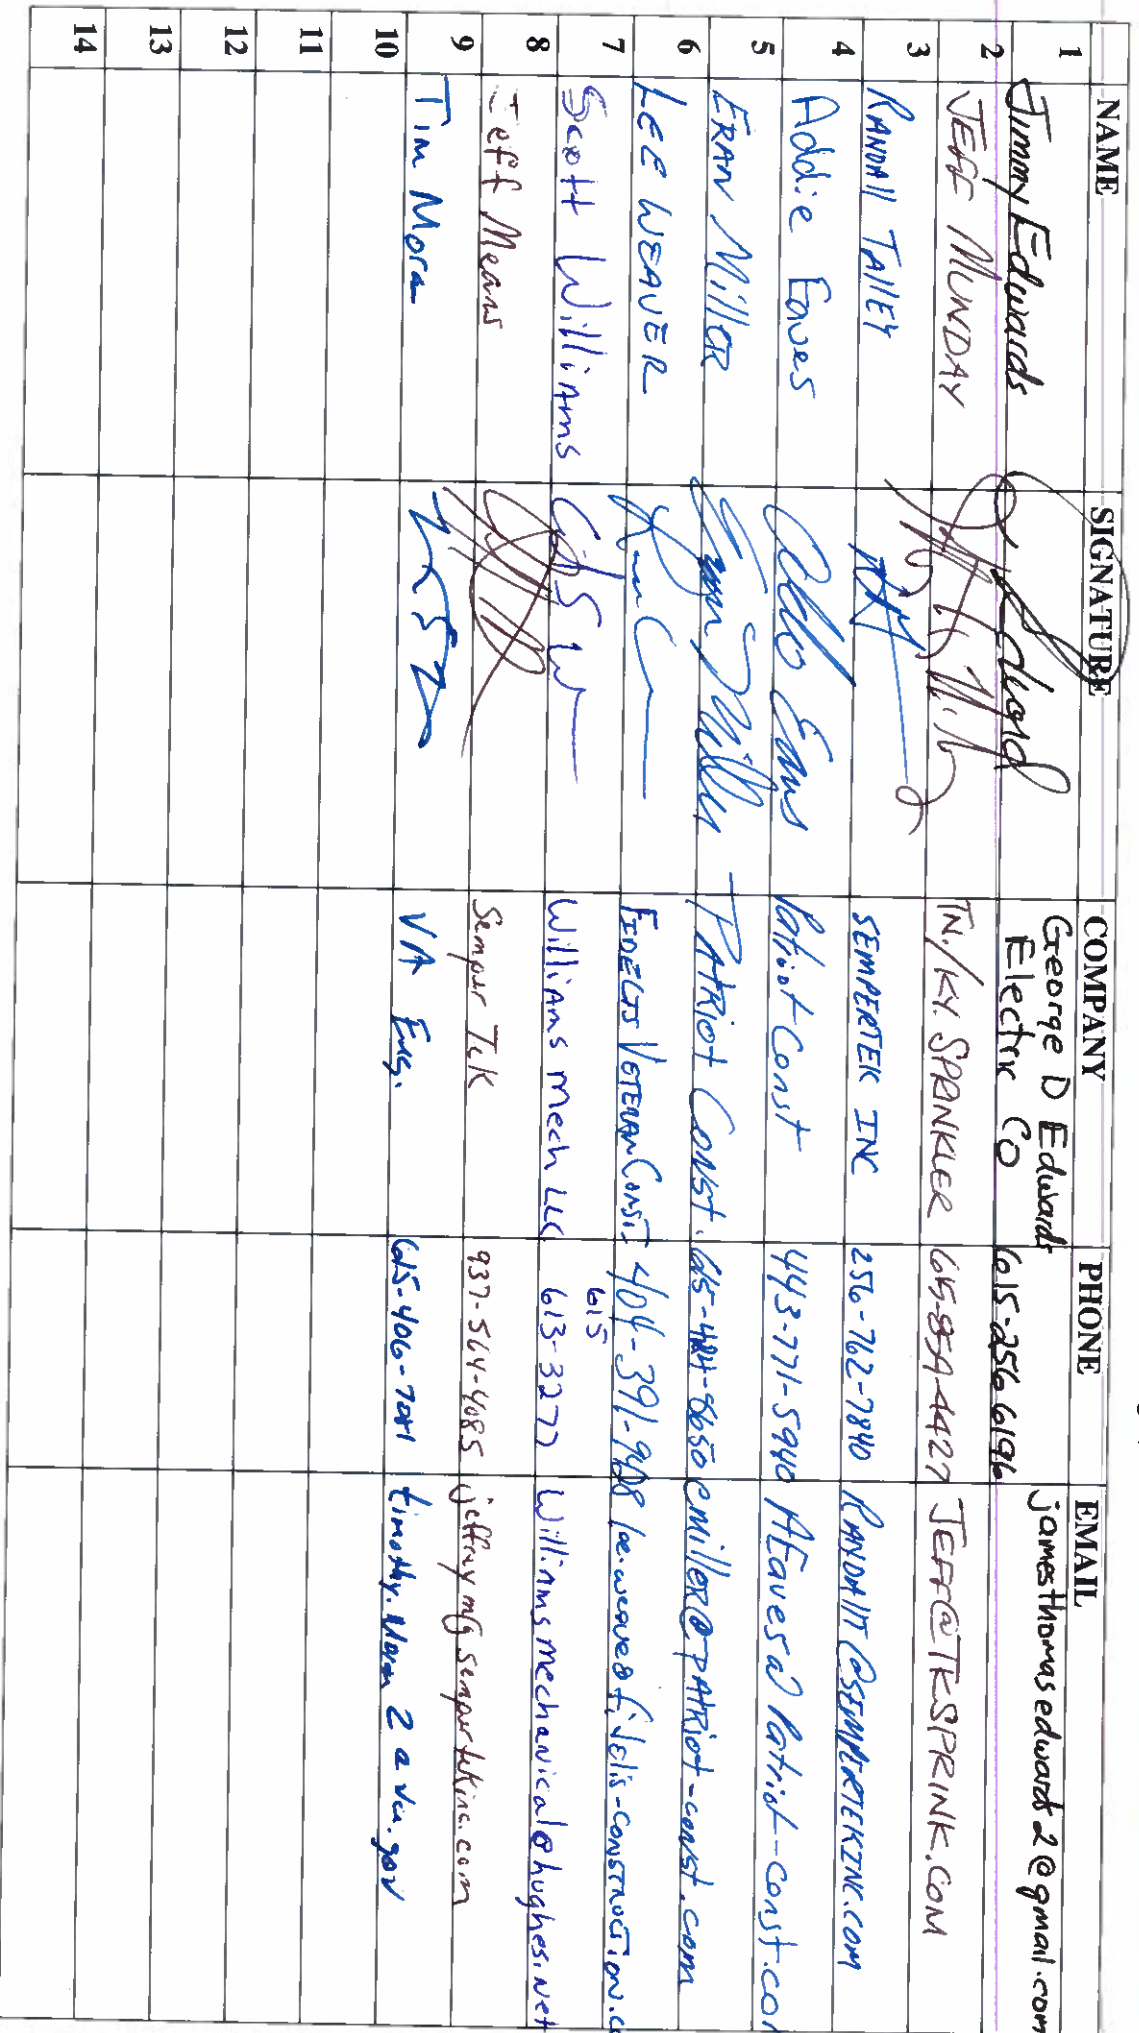 NAME SIGNATURE COMPANY PHONE EMAIL
1 Jimmy Edwards George D Edwards Electric Co 615-256-6196 jamesthomasedward2@gmail.com
2 JEFF MUNDAY TN./KY. SPRINKLER 615-854-4427 JEFF@TKSPRINK.COM
3 RANDAll TAllEY SEMPERTEK INC 256-762-7840 RANDAllT@SEMPERTEKINC.COM
4 Addie Eaves Patriot Const 443-771-5940 AEaves@Patriot-const.com
5 ERAN MillER PATRiot CONST. emiller@PATRiot-const.com
6 LEE WEAVER FIDELIS VETERAN CONST.
7 Scott Williams Williams Mech LLC 615 613-3277 Williamsmechanical@hughes.net
8 Jeff Means Semper Tek 937-564-4085
9 Tim Moran VA Eng.
10
11
12
13
14